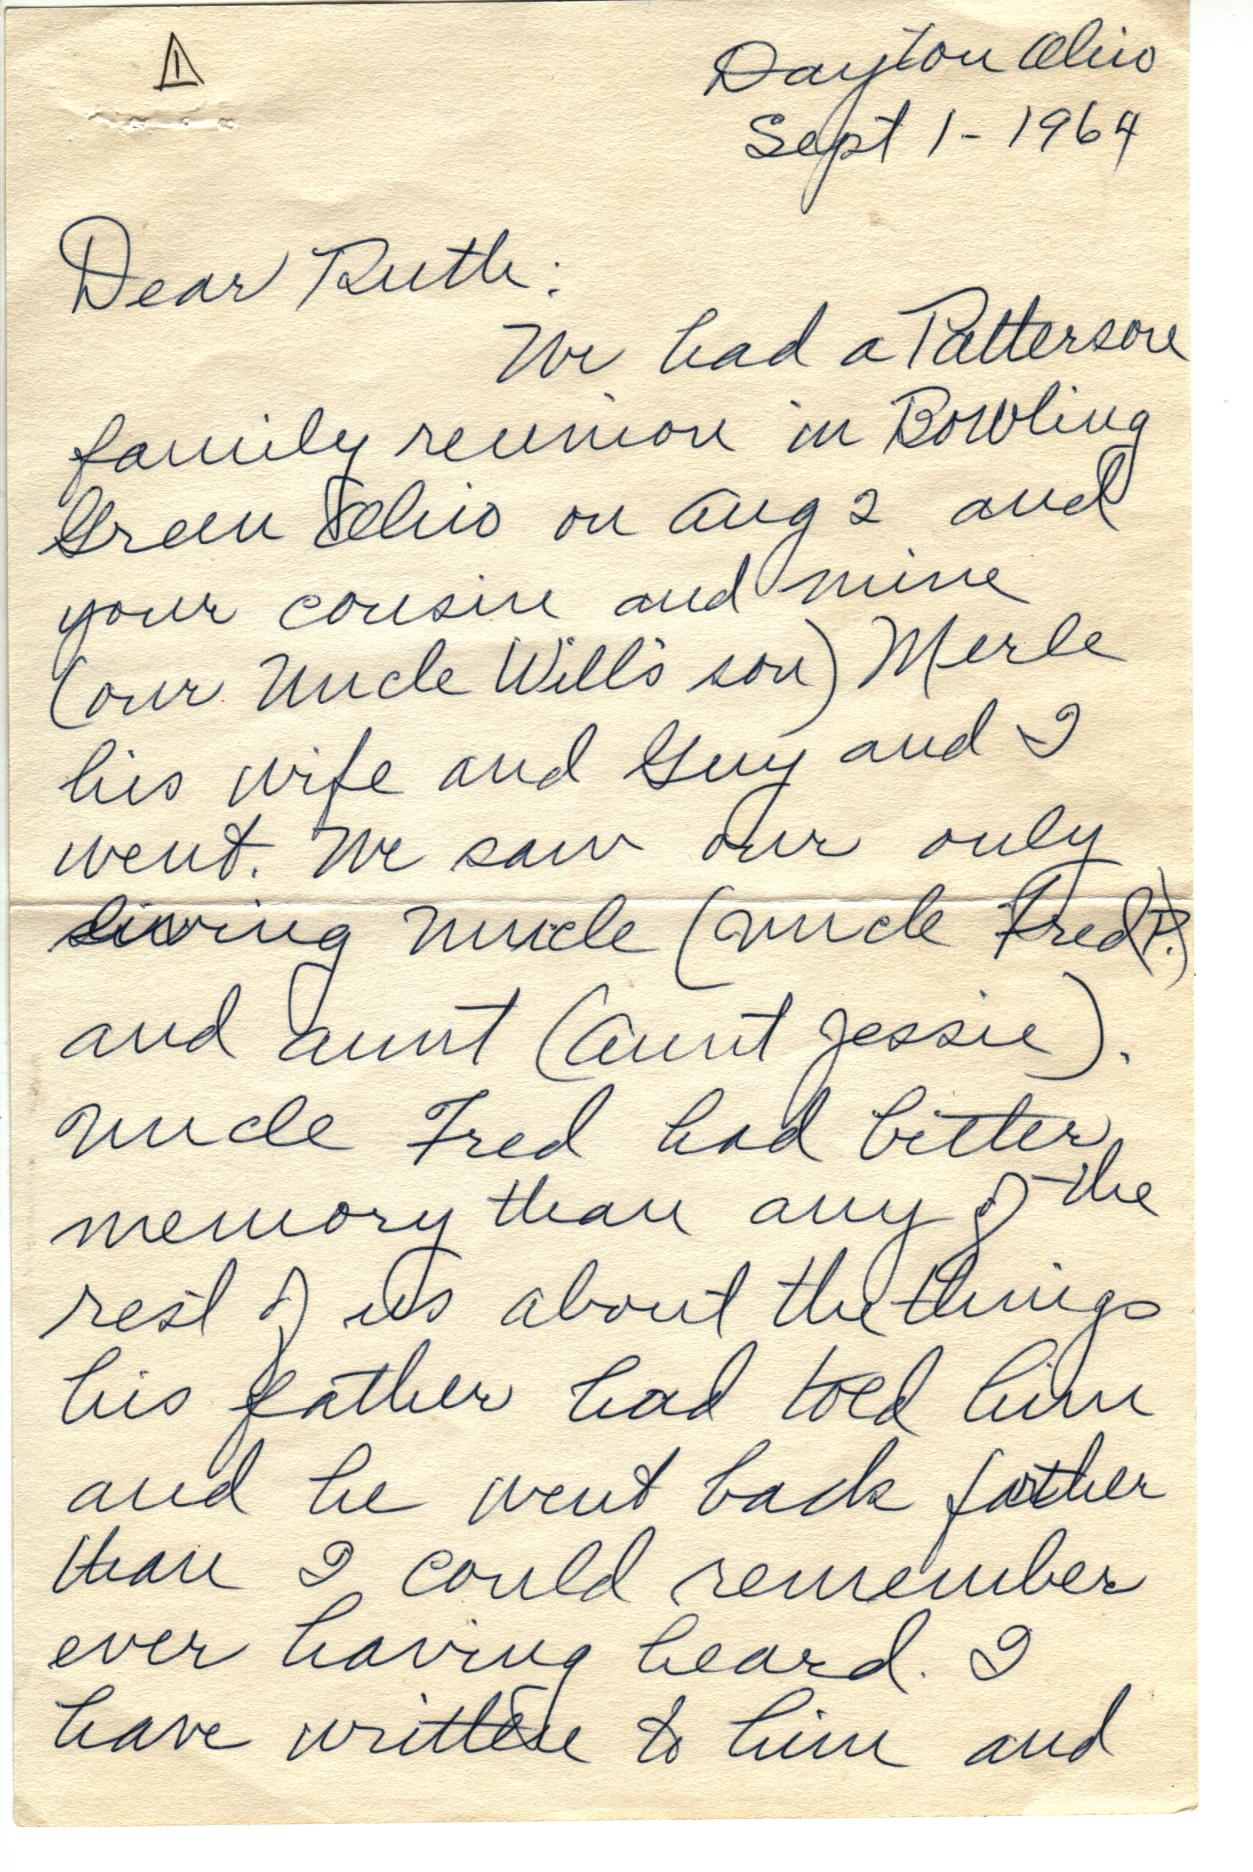 1
Dayton Ohio
Sept 1 - 1964
Dear Ruth:
We had a Patterson
family reunion in Bowling
Green Ohio on Aug 2 and
your cousin and mine
(our Uncle Will's son) Merle
his wife and Guy and I
went. We saw our only
living uncle (Uncle Fred P.)
and aunt (Aunt Jessie).
Uncle Fred had better
memory than any of the
rest of us about the things
his father had told him
and he went back farther
than I could remember
ever having heard. I
have written to him and